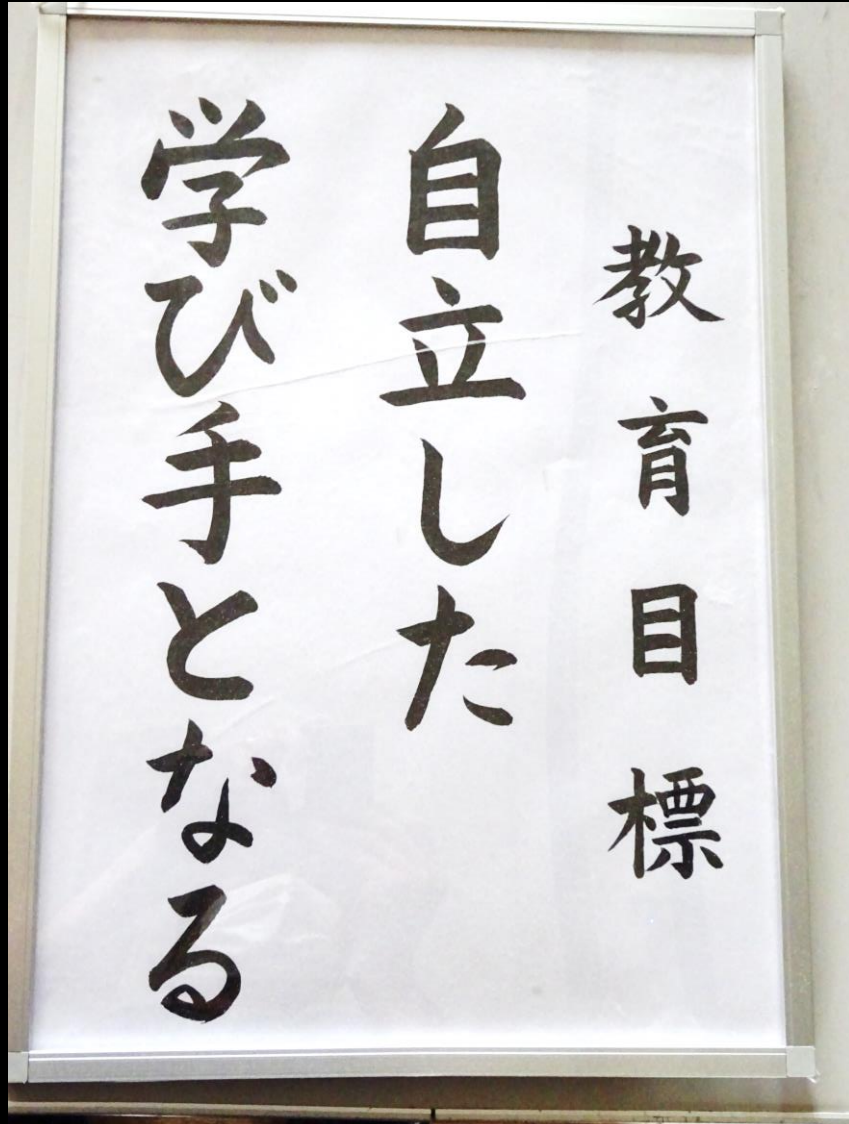 教育目標
自立した
学び手となる